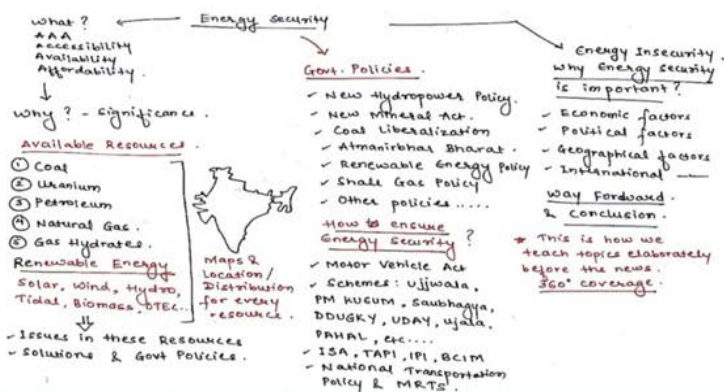 Energy Security
What?
AAA
Accessibility
Availability
Affordability.
Why? - Significance.
Available Resources.
1 Coal
2 Uranium
3 Petroleum
4 Natural Gas.
5 Gas Hydrates.
Renewable Energy
Solar, Wind, Hydro,
Tidal, Biomass, OTEC..
Issues in these Resources
Solutions & Govt Policies.
Maps &
Location/
Distribution
for every
resource.
Govt. Policies.
New Hydropower Policy.
New Mineral Act.
Coal Liberalization
Atmanirbhar Bharat.
Renewable Energy Policy
Shale Gas Policy
Other policies.....
How to ensure
Energy Security?
Motor Vehicle Act
Schemes: Ujjwala,
PM KUSUM, Saubhagya,
DDUGKY, UDAY, Ujala,
PAHAL, etc....
ISA, TAPI, IPI, BCIM
National Transportation
Policy & MRTS.
Energy Insecurity.
Why Energy Security
is important?
Economic factors
Political factors
Geographical factors
International
Way Forward
& Conclusion.
* This is how we
teach topics elaborately
before the news.
360° coverage.